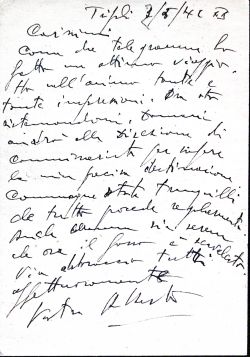 Tripoli 2/5/41 XIX
Carissimi,
Come da telegramma ho
fatto un ottimo viaggio.
Ho nell'animo tante e
tante impressioni. Ora sto
sistemandomi. Domani
andrò alla Direzione di
Commissariato per sapere
la mia precisa destinazione.
Comunque state tranquilli
che tutto procede regolarmente.
Anche
che ora il
Vi abbraccio tutti
affettuosamente
Vostro Alberto